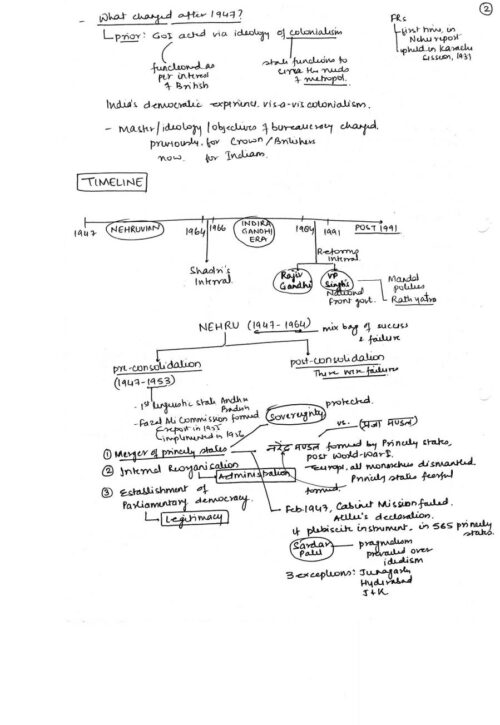 2
- What changed after 1947?
prior: GoI acted via ideology of colonialism
functioned as
per interest
of British
state functions to
serve the needs
of metropol.
FRs
first time, in
Nehru report
upheld in Karachi
session, 1931
India's democratic experience vis-a-vis colonialism.
- Master/ideology/objectives of bureaucracy changed.
previously. for Crown/Britishers
now. for Indians.
TIMELINE
NEHRUVIAN
INDIRA
GANDHI
ERA
1947
1964
1966
1984
1991
POST 1991
Shastri's
Interval.
Reforms
Interval.
Rajiv
Gandhi
VP
Singh's
National
Front govt.
Mandal
politics
Rath yatra
NEHRU (1947-1964)
mix bag of success
& failure
pre-consolidation
(1947-1953)
post-consolidation
There were failures
- 1st linguistic state Andhra
Pradesh
- Fazal Ali Commission formed
report in 1955
implemented in 1956
Sovereignty
protected.
vs.
① Merger of princely states
नरेंद्र मण्डल formed by Princely states,
post World-War I.
- Europe, all monarchies dismantled.
Princely states fearful
formed
② Internal Reorganisation
Administration
③ Establishment of
Parliamentary democracy.
Legitimacy
Feb 1947, Cabinet Mission failed.
Atlee's declaration.
plebiscite instrument, in 565 princely
states.
Sardar
Patel
pragmatism
prevailed over
idealism
3 exceptions: Junagarh
Hyderabad
J+K